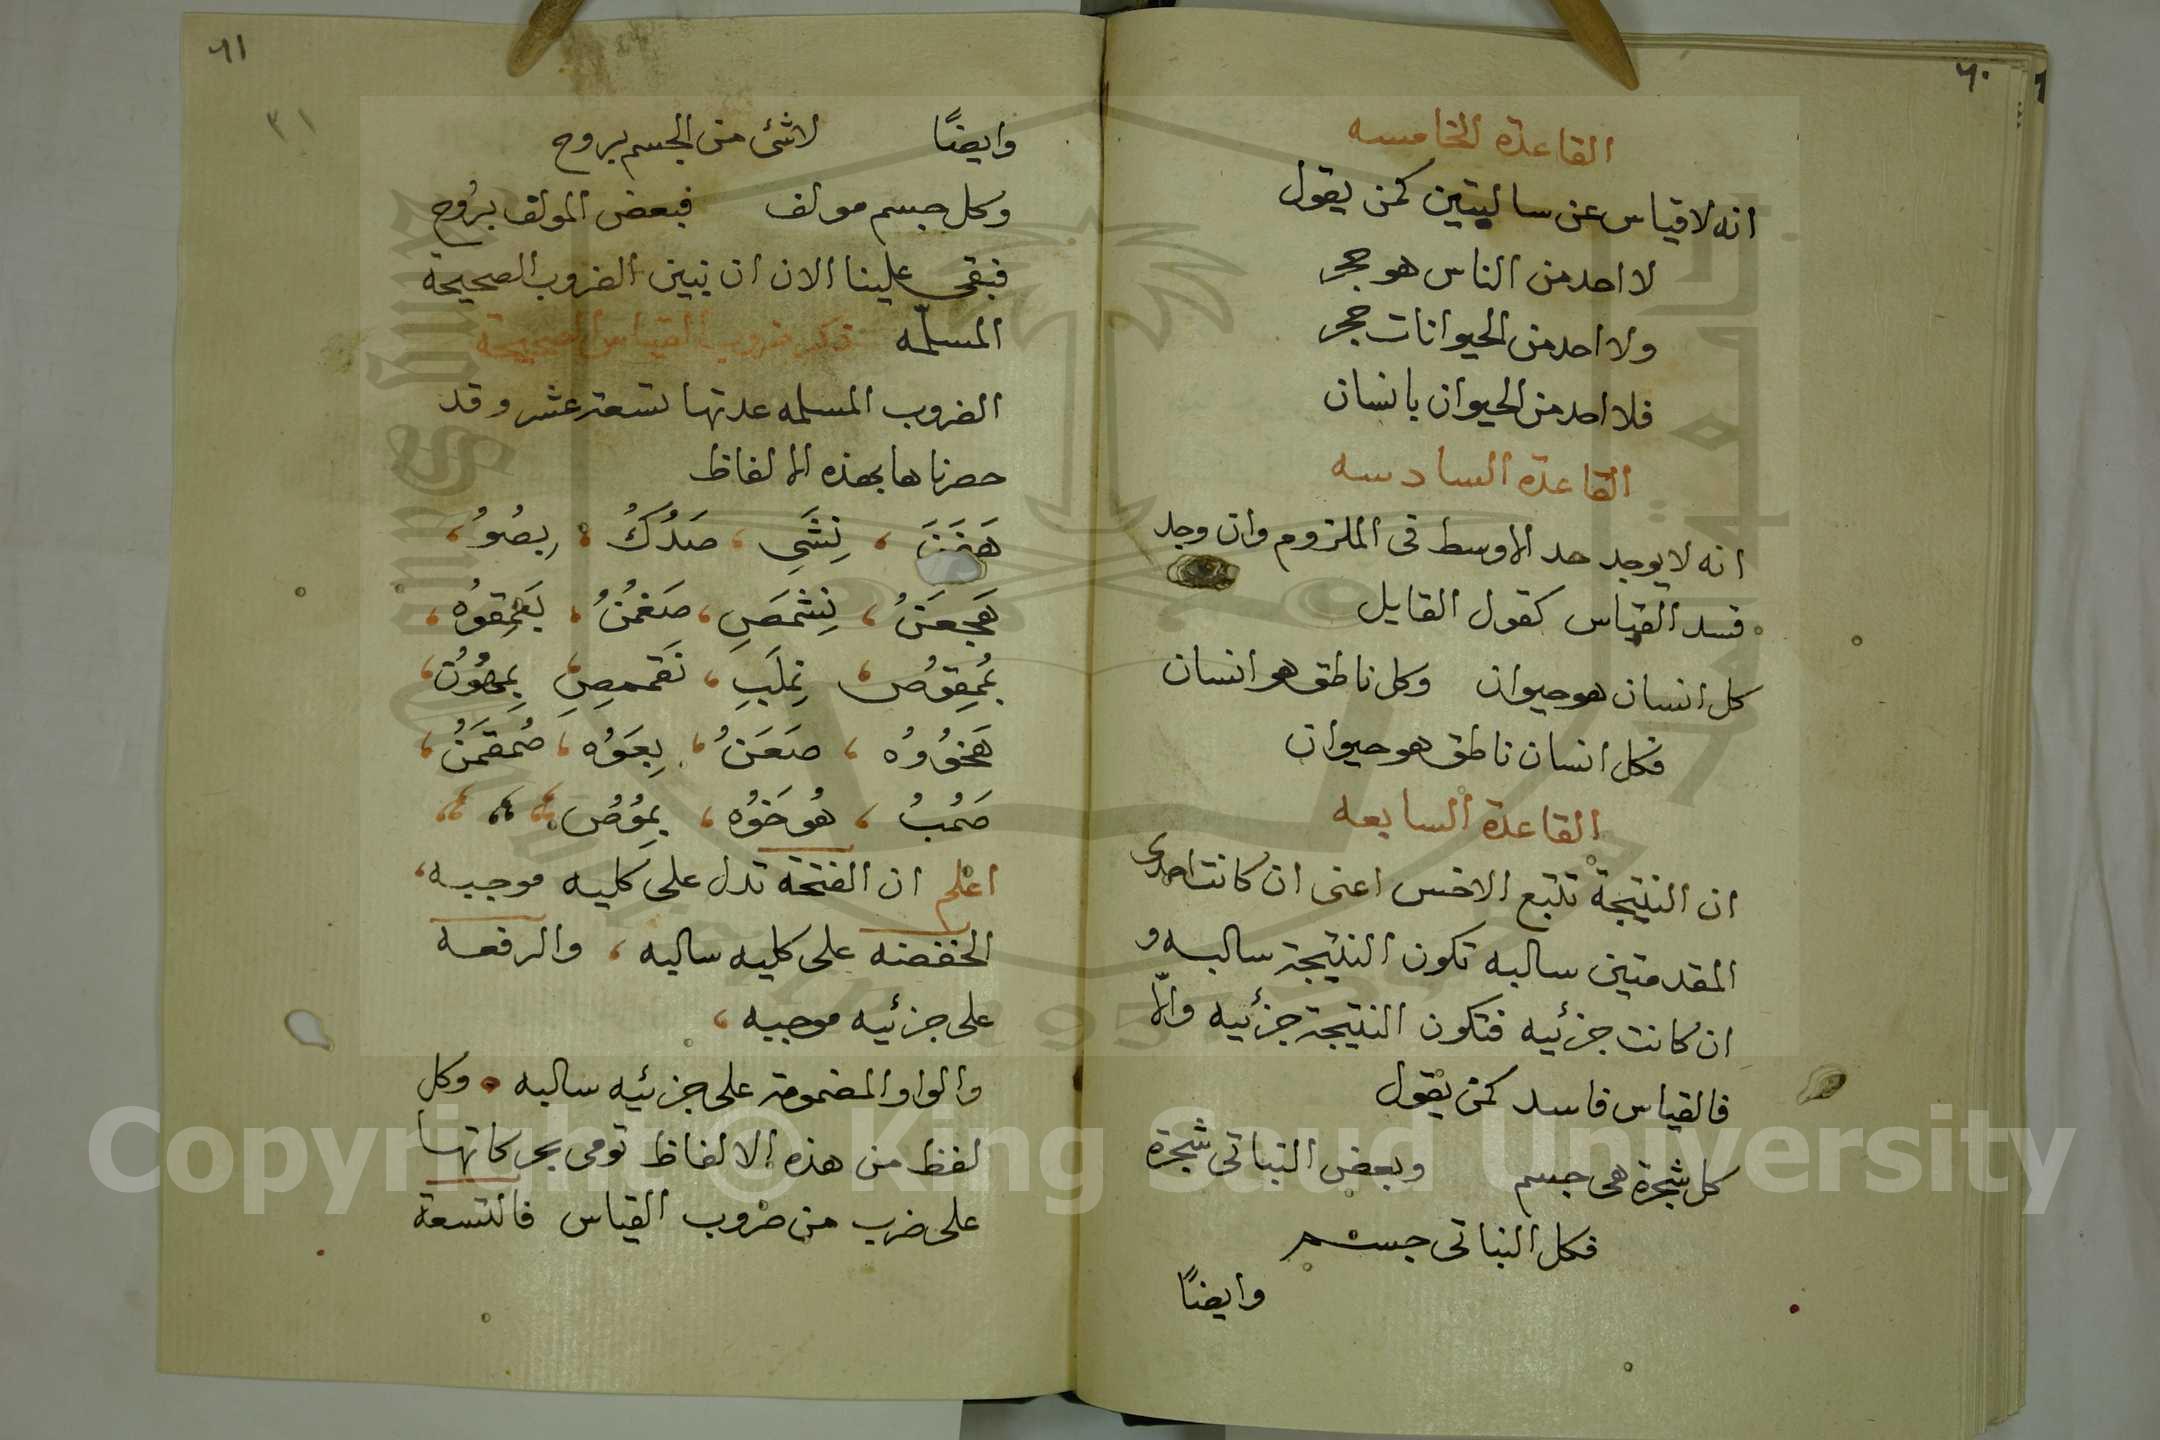 ٦٠
القاعدة الخامسه
انه لا قياس عن سالبتين كمن يقول
لا احد من الناس هو حجر
ولا احد من الحيوانات حجر
فلا احد من الحيوان بانسان
القاعدة السادسه
انه لا يوجد حد الاوسط فى الملزوم وان وجد
فسد القياس كقول القايل
كل انسان هو حيوان وكل ناطق هو انسان
فكل انسان ناطق هو حيوان
القاعدة السابعه
ان النتيجة تتبع الاخس اعنى ان كانت احدى
المقدمتين سالبه تكون النتيجة سالبه و
ان كانت جزئيه فتكون النتيجة جزئيه والّا
فالقياس فاسد كمن يقول
كل شجرة هى جسم وبعض النباتى شجرة
فكل النباتى جسم
وايضًا
٦١
٣١
وايضًا لا شئ من الجسم بروح
وكل جسم مولف فبعض المولف بروح
فبقى علينا الان ان نبين الضروب الصحيحة
المسلّمه ذكر ضروب القياس الصحيحة
الضروب المسلمه عدتها تسعة عشر وقد
حصرناها بهذه الالفاظ
نِشَىِ ، صَدُكُ ، بِصُوُ ،
هَجَعَنُ ، نِشمَصِ ، صَغمُنُ ،
صَعَنُ ، بِعَوُه ، صُمقَمَنُ ،
صَمُبُ ، هُوخَوُه ، بِمِوُصُ
اعلم ان الفتحة تدل على كليه موجبه ،
الخفضه على كليه سالبه ، والرفعه
على جزئيه موجبه ،
والواو المضمومة على جزئيه سالبه . وكل
لفظ من هذه الالفاظ تومى بحركاتها
على ضرب من ضروب القياس فالتسعة
Copyright © King Saud University